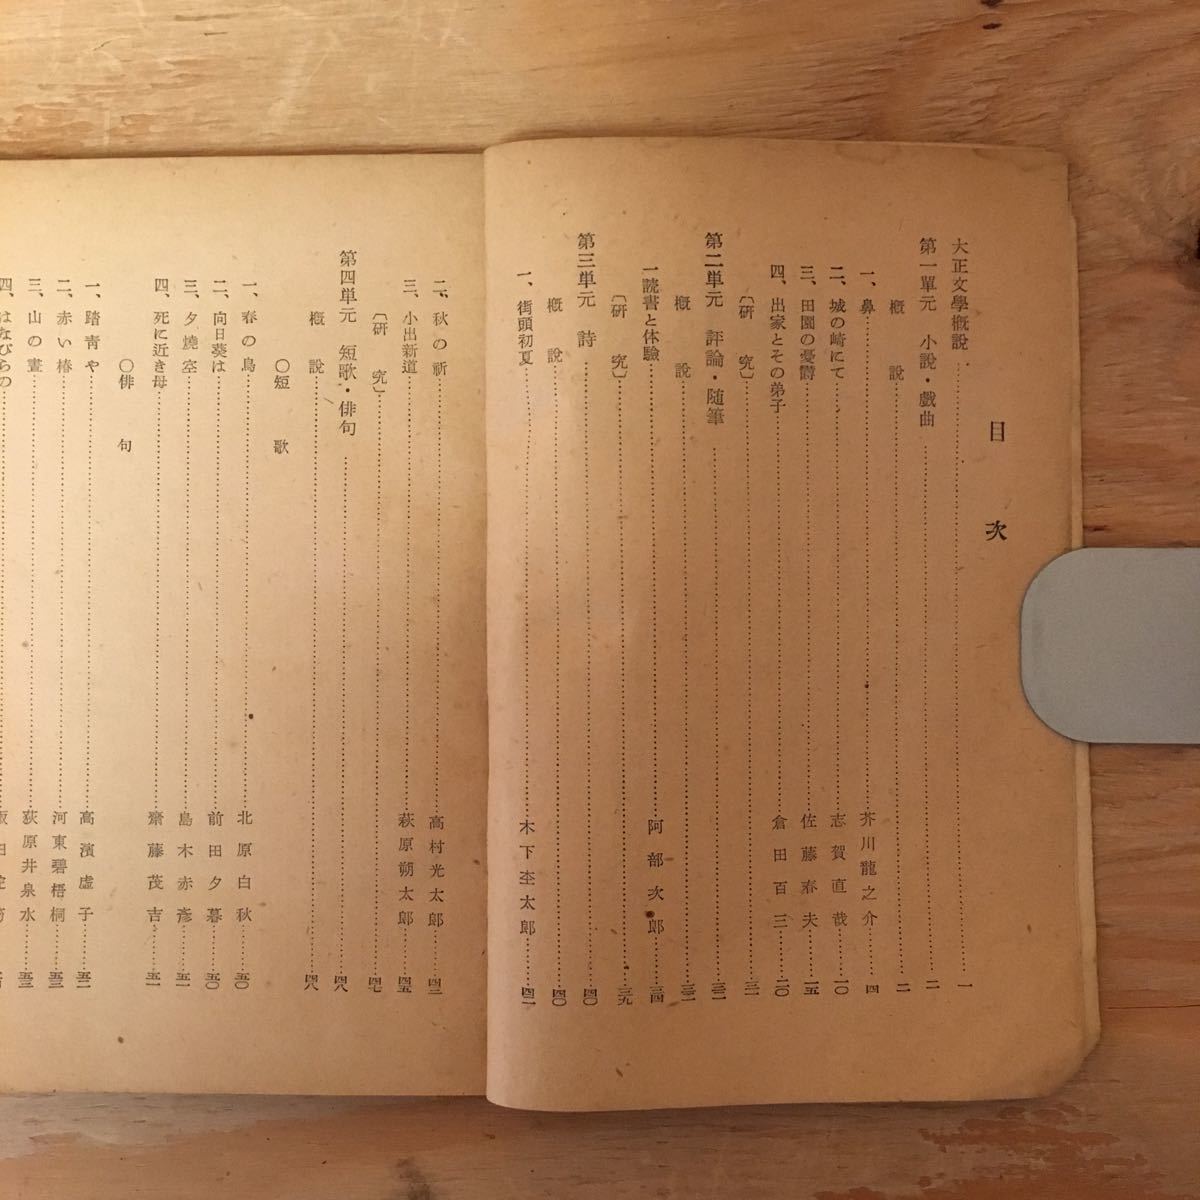 目次
大正文學概説……一
第一單元　小説・戲曲……二
概説……二
一、鼻……芥川龍之介……四
二、城の崎にて……志賀直哉……一〇
三、田園の憂欝……佐藤春夫……一五
四、出家とその弟子……倉田百三……二〇
〔研究〕……三一
第二単元　評論・随筆……三二
概説……三二
一読書と体驗……阿部次郎……三四
〔研究〕……三九
第三単元　詩……四〇
概説……四〇
一、街頭初夏……木下杢太郎……四二
二、秋の祈……高村光太郎……四三
三、小出新道……萩原朔太郎……四五
〔研究〕……四七
第四単元　短歌・俳句……四八
概説……四八
〇短歌
一、春の鳥……北原白秋……五〇
二、向日葵は……前田夕暮……五〇
三、夕燒空……島木赤彥……五一
四、死に近き母……齋藤茂吉……五一
〇俳句
一、踏靑や……高濱虚子……五二
二、赤い椿……河東碧梧桐……五三
三、山の晝……荻原井泉水……五三
四、はなびらの